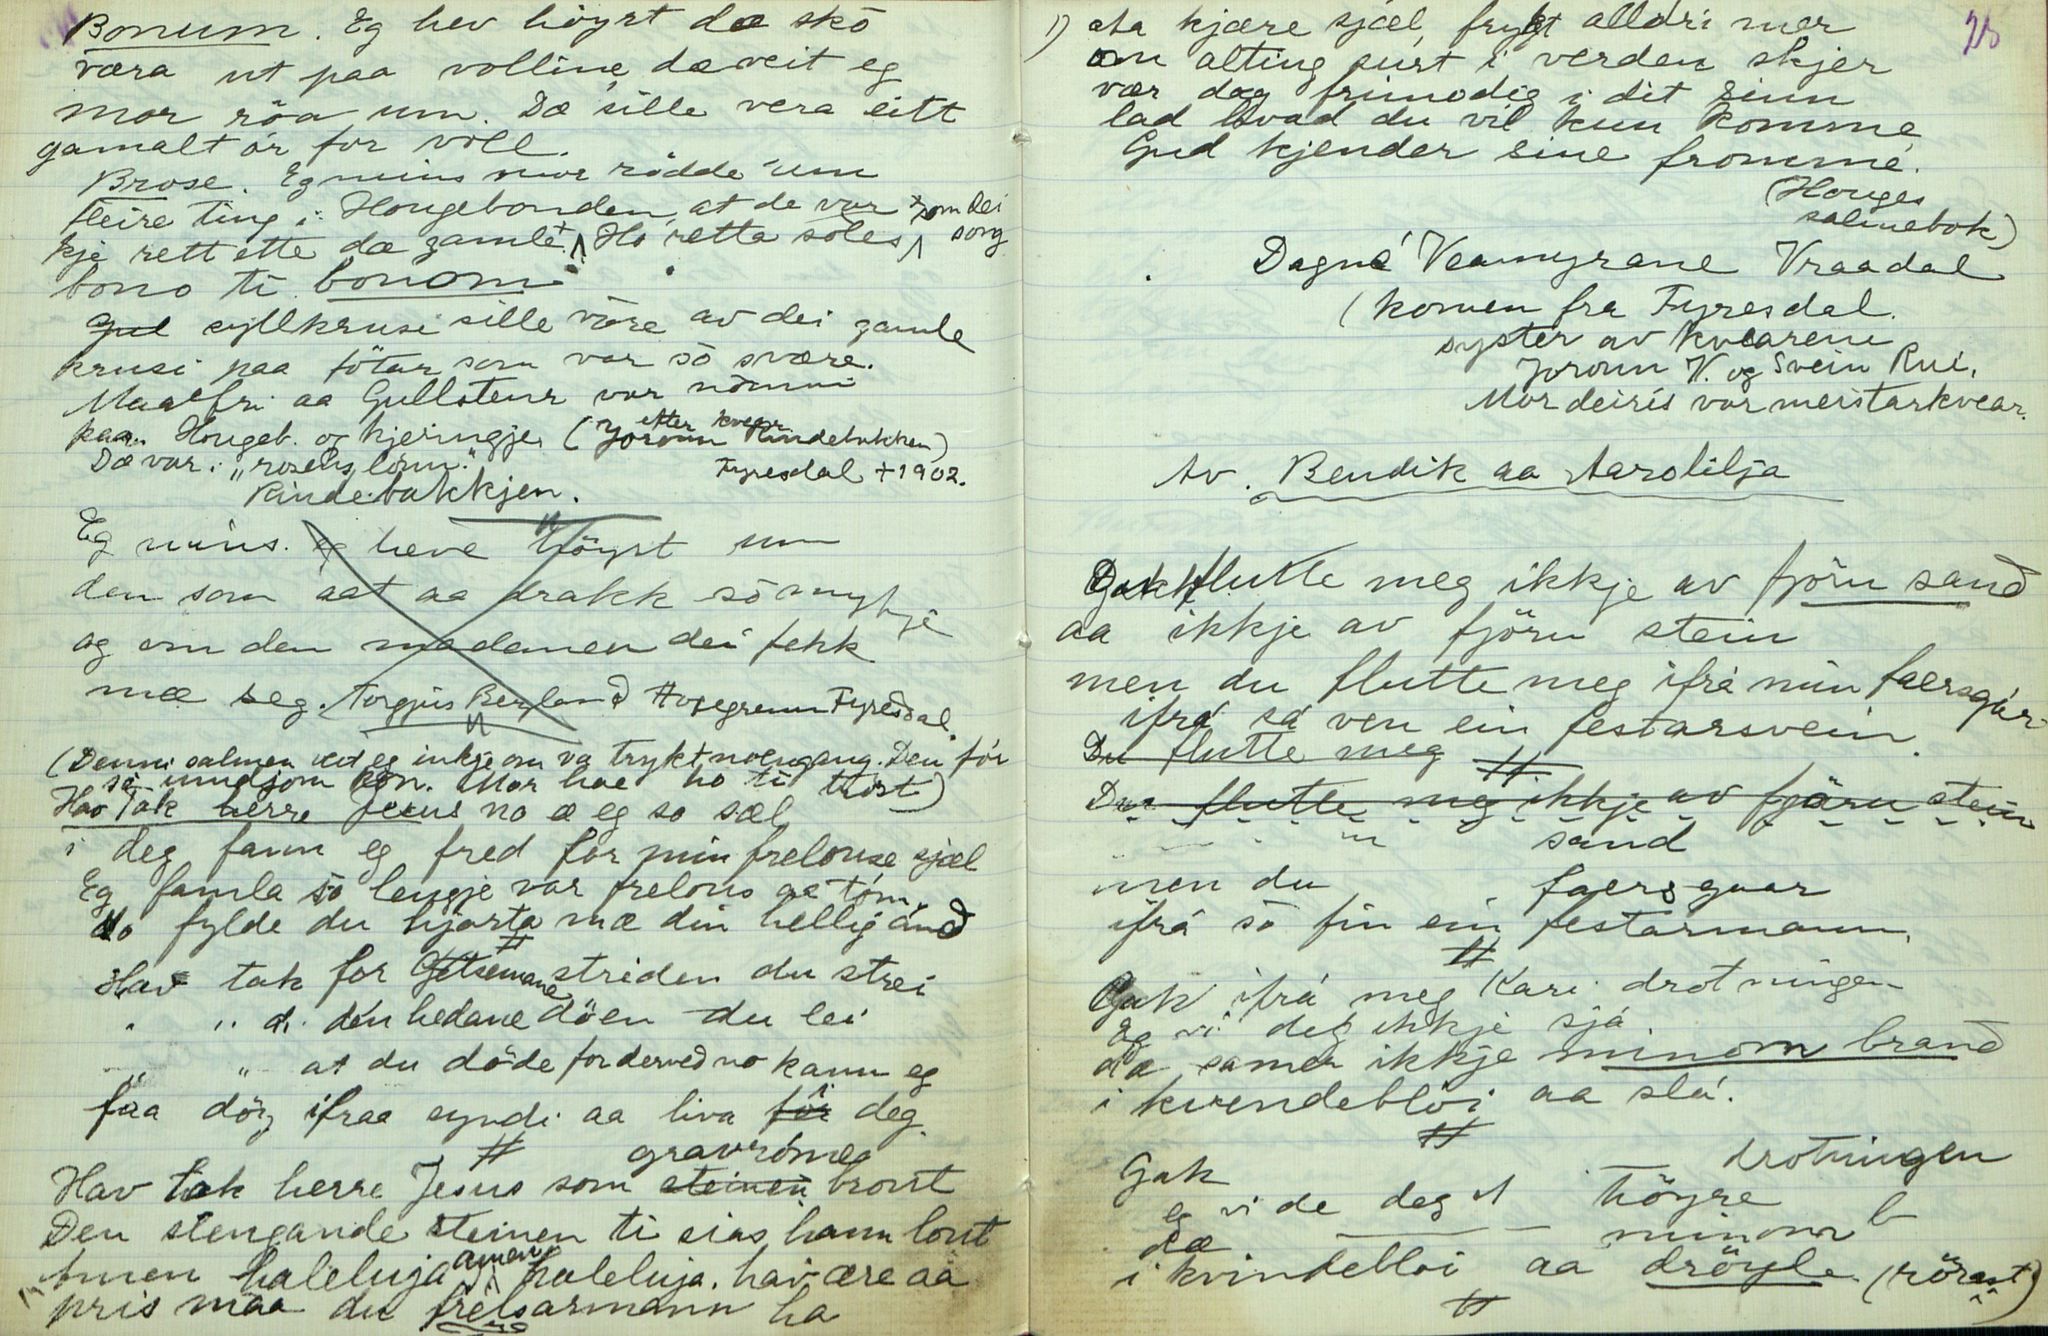 Bonum. Eg hev höyrt dæ skó
væra ut paa volline, dæ veit eg
mor róa um. Dæ sille vera eitt
gamalt ór for voll.
Brose. Eg mins mor rödde um
fleire ting i Hougebonden, at de var som dei song
kje rett ette dæ gamle. Ho retta soles
bono ti bonom
syllkrusi sille vöre av dei gamle
krusi paa fötar som var só svære.
Maalfri aa Gullsteur var nömni
paa Hougeb. og kjeringje (etter kvear Joronn Rindebakken)
Dæ var i "rosenslöun". Fyresdal + 1902.
Rindebakkjen.
Eg mins. eg heve höyrt um
den som aat aa drakk só mykje
og om den madamen dei fekk
mæ seg. Torgjus Berland Hegregrenn Fyresdal.
(Denni salmen veit eg inkje om va trykt noengang. Den fór
so mudjom kón. Mor hae ho ti tröst)
Hav Tak herre Jesus no æ eg so sæl
i deg fann eg fred for min frelouse sjæl
Eg famla só lengje var frelous aa tóm.
do fylde du hjarta mæ din hellig ánd
Hav tak for Getsemane striden du strei
" " d. den hedane döen du lei
" " at du döde for derved no kann eg
faa döy ifraa syndi aa liva for i deg.
gravrómeg
Hav tak herre Jesus som steinen broust
Den stengande steinen ti sias hann loust
Amen haleluja amen haleluja. hav ære aa
pris maa du frelsarmann ha
28
1) Aa kjære sjæl, frygt alldri mer
om alting surt i verden skjer
vær dog frimodig i dit sinn
lad hvad du vil kun komme
Gud kjender sine fromme.
(Houges
salmebok)
Dagne Veamyrane Vraadal
(komen fra Fyresdal.
syster av kvearene
Joronn V. og Svein Rui.
Mor deiris var meistarkvear.
Av. Bendik aa Aarolilja
Gakk flutte meg ikkje av fjöru sand
aa ikkje av fjöru stein
men du flutte meg ifrá min faersgár
ifrá sá ven ein festarsvein.
Du flutte meg
Du flutte meg ikkje av fjöru stein
" sand
men du faersgaar
ifrá só fin ein festarmann.
Gakk ifrá meg Kari drotningen
Eg vi deg ikkje sjá
dæ samer ikkje minom brand
i kvendeblói aa slá.
Gak drotningen
eg vi de deg höyre
dæ minom b
i kvindebloi aa dröyle. (röra st)